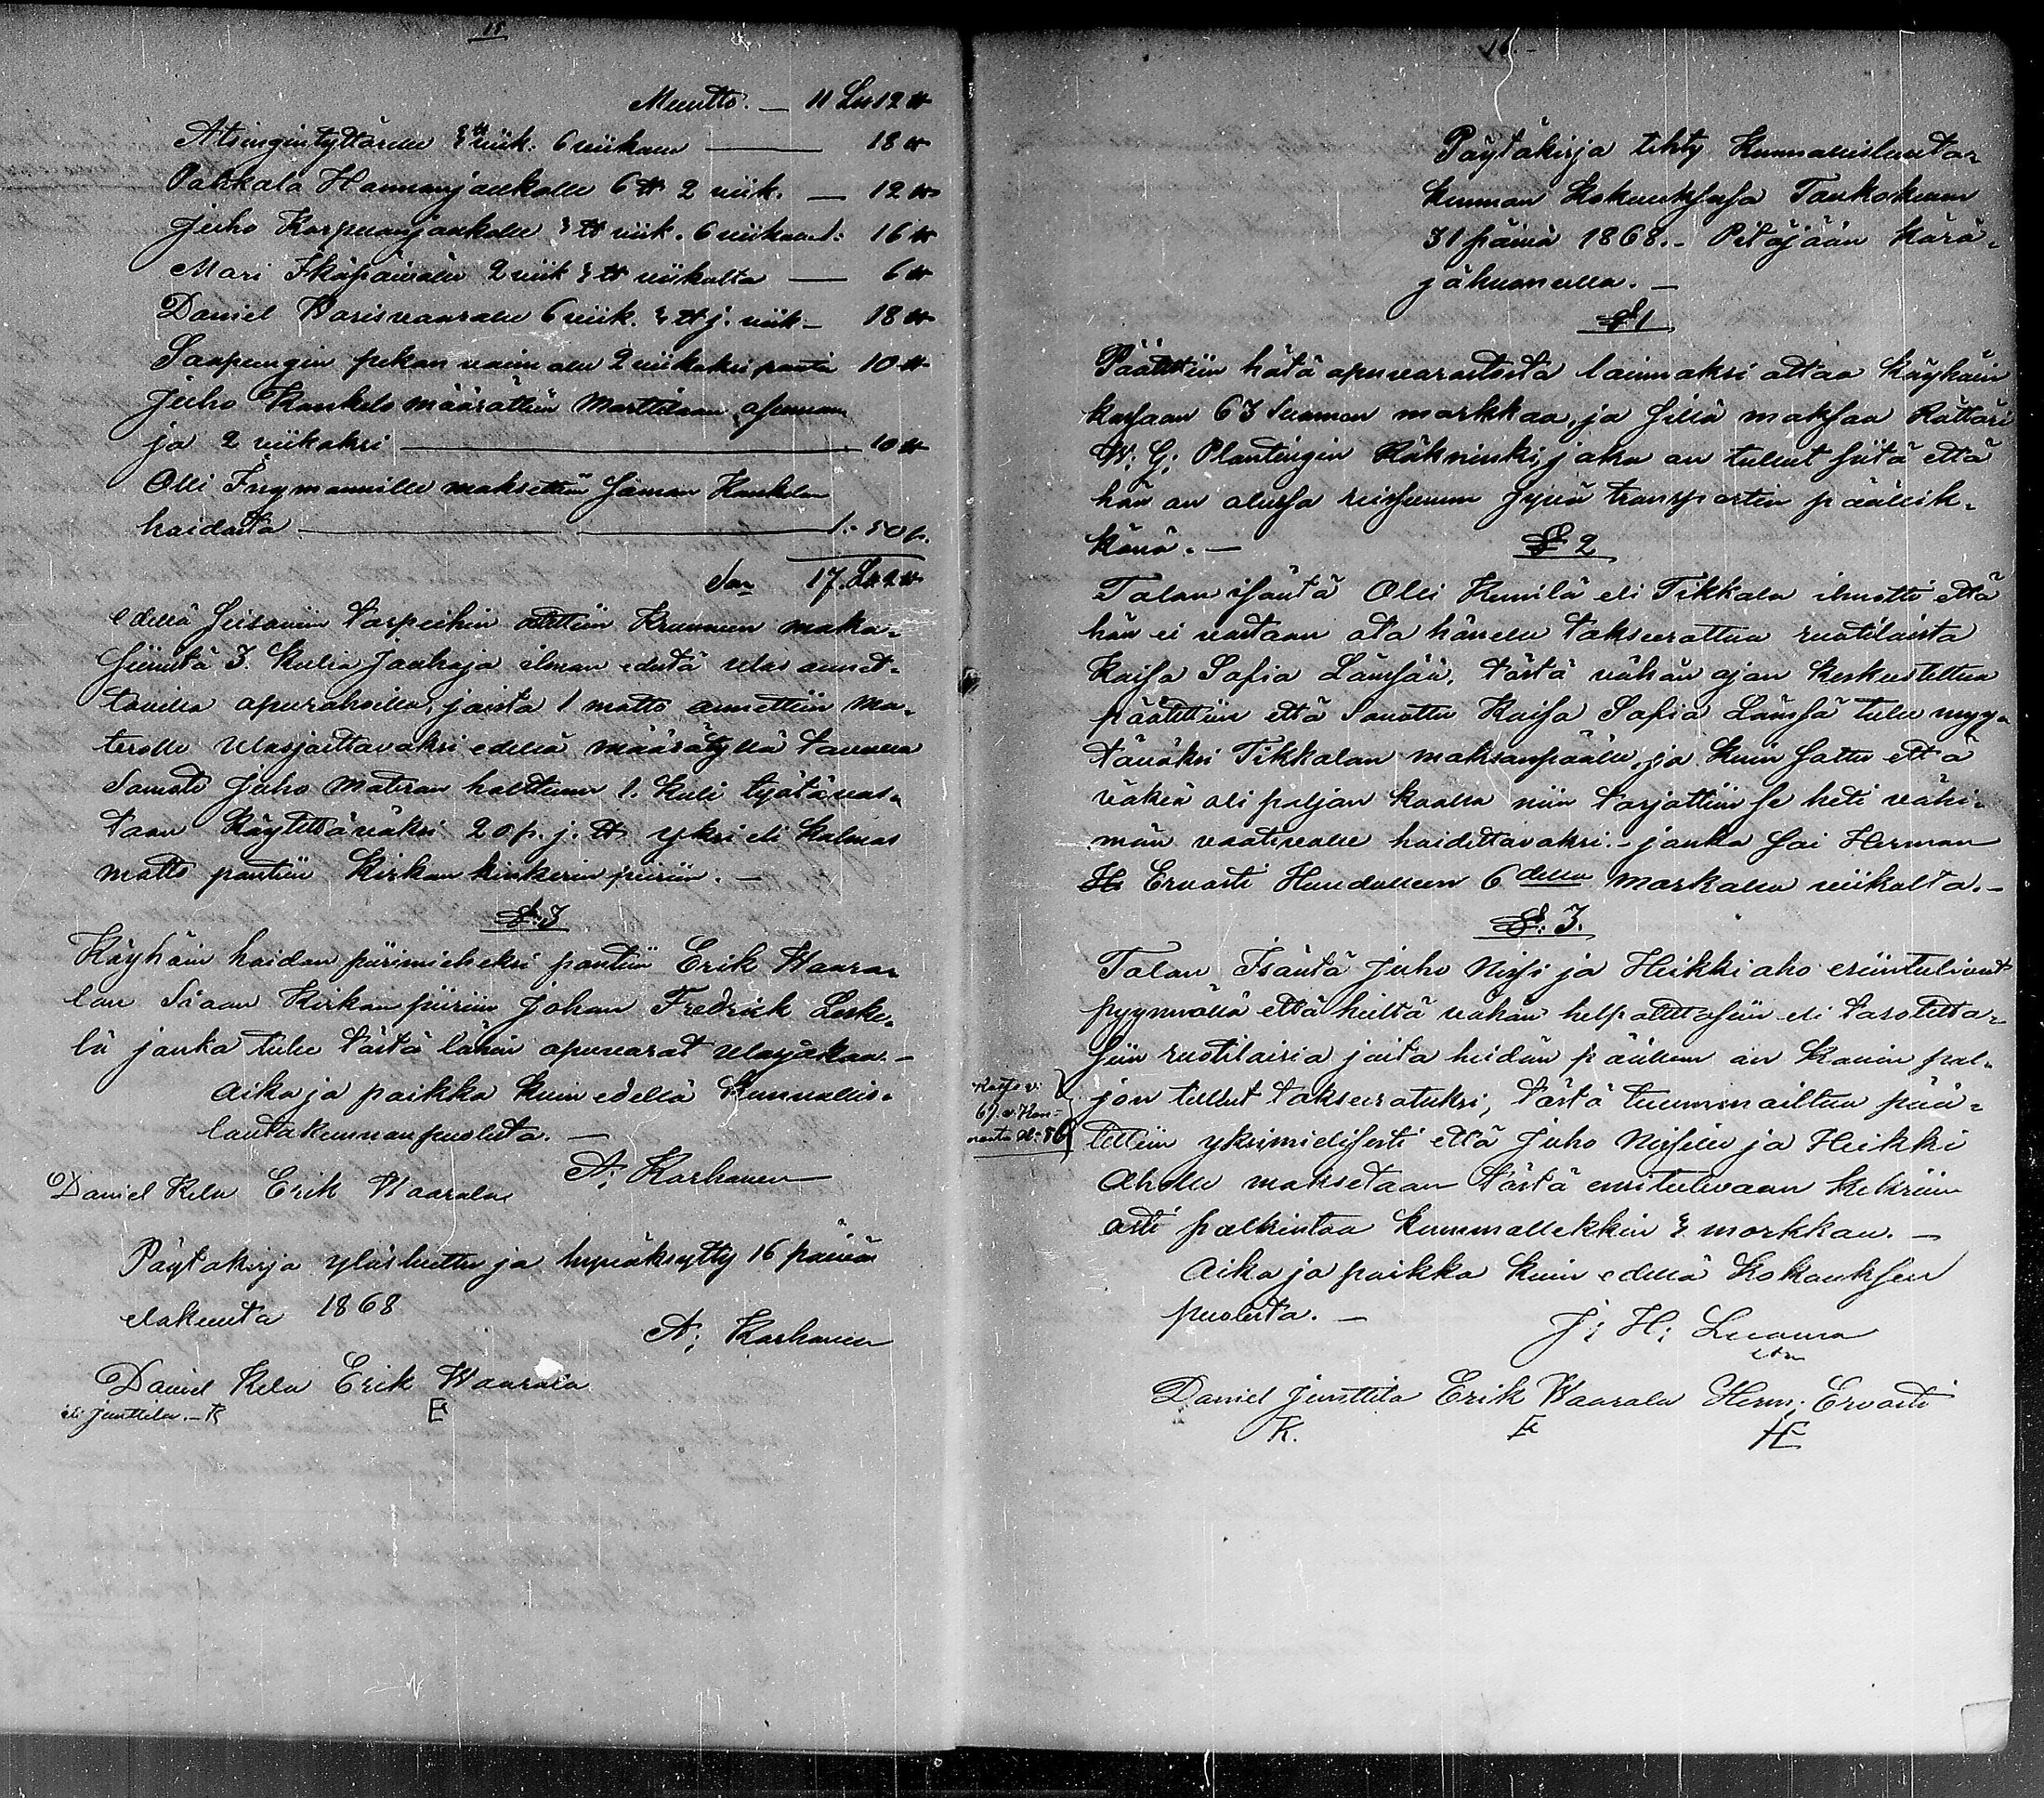 15
Muutto. — 11 Ls 12 ℔
Atsingintyttärelle 3 ℔ viik. 6 viikolle — 18 ℔
Pahkala Hannunjaakolle 6 ℔ 2 viik. — 12 ℔
Juho Karpuanjaakolle 3 ℔ viik. 6 viikolle 16 ℔
Mari Ikäpäivälle 2 viik 3 ℔ viikolta — 6 ℔
Daniel Warisvaaralle 6 viik. 3 ℔ j. viik — 18 ℔
Saapungin pekan vaimolle 2 viikoksi 10 ℔
Juho Kankelo määrättiin Marttilaan asumaan
ja 2 viikoksi — 10 ℔
Olli Frygmannille maksettiin Kankelon
hoidosta — 1:50 p.
Sa 17. Ls 2 ℔
edellä seisoviin tarpeihin otettiin Kruunun maka-
siinistä 3. kulia jauhoja ilman edestä ulos annet-
tavilla apurahoilla, joista 1 matto annettiin Ma-
terolle ulosjaettavaksi edellä määrätyllä tavalla
Samoti Juho Materan haltuun 1. kuli työtävas-
taan käytettäväksi 20 p. j. ℔ yksi eli kolmas
matto pantiin Kirkon kinkerin piiriin. —
§. 3
Käyhäin hoidon piirimieheksi pantiin Erik Waara-
lan siaan Kirkon piiriin Johan Fredrick Leske-
lä jonka tulee tästä lähin apuvarat ulosjakaa. —
Aika ja paikka kuin edellä Kunnallis-
lautakunnan puolesta. —
A; Karhanen
Daniel Kela Erik Waarala
Päytäkirja ylösluettu ja hyväksytty 16 päivä
elokuuta 1868
A; Karhanen
Daniel Kela Erik Waarala
eli Junttila. — K E
16. —
Päytäkirja tehty Kunnallislauta-
kunnan Kokouksesa Toukokuun
31 päivä 1868. — Pitäjään Kärä-
jähuoneella. —
§ 1
Päätettiin hätä apuvaroitsta lainnaksi ottaa Käyhäin
kassaan 63 Suomen markkaa, ja sillä maksaa Rättäri
W; G; Plantingin Räkninki, joka on tullut siitä että
hän on olussa reissuun jyvä transportin päällik-
könä. —
§ 2
Talon isäntä Olli Kunilä eli Tikkala ilmotti että
hän ei vastaan ota hänelle takseerattua ruotilaista
Kaisa Sofia Lämsää, tästä vähän ajan keskusteltua
päätettiin että sanottu Kaisa Sofia Lämsä tulee myy-
täväksi Tikkalan maksanpäälle, ja kuin sattu että
väkeä oli paljon koolla niin tarjottiin se heti vähi-
män vaativalle hoidettavaksi. — jonka sai Herman
H Ervasti Huudolleen 6 della markalla viikolta. —
§. 3.
Talon Isäntä Juho Nissi ja Heikki aho esiintulivat
pyynnöllä että heiltä vähän helpotettasiin eli tasotetta-
siin ruotilaisia joita heidän päällen on kovin pal-
jon tullut takseeratuksi, tästä tuummailtua pää-
tettiin yksimielisesti että Juho Nissille ja Heikki
Aholle maksetaan tästä ensitulevaan Kekriin
asti palkintoa kummallekkin 3 morkkaa. —
Aika ja paikka kuin edellä Kokouksen
puolesta. —
J; H; Luoma
Daniel Junttila Erik Waarala Herm; Ervasti
K. E HE